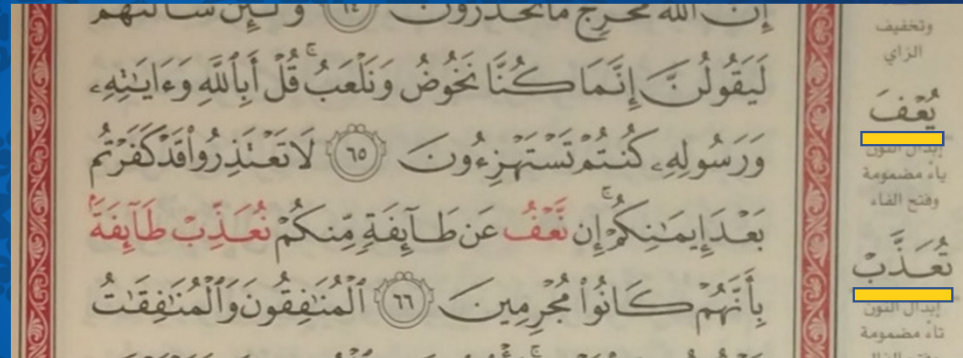 إِنَّ ٱللَّهَ مُخْرِجٌ مَّا تَحْذَرُونَ ٦٤ وَلَئِن سَأَلْتَهُمْ
لَيَقُولُنَّ إِنَّمَا كُنَّا نَخُوضُ وَنَلْعَبُ ۚ قُلْ أَبِٱللَّهِ وَءَايَٰتِهِۦ
وَرَسُولِهِۦ كُنتُمْ تَسْتَهْزِءُونَ ٦٥ لَا تَعْتَذِرُوا۟ قَدْ كَفَرْتُم
بَعْدَ إِيمَٰنِكُمْ ۚ إِن نَّعْفُ عَن طَآئِفَةٍ مِّنكُمْ نُعَذِّبْ طَآئِفَةًۢ
بِأَنَّهُمْ كَانُوا۟ مُجْرِمِينَ ٦٦ ٱلْمُنَٰفِقُونَ وَٱلْمُنَٰفِقَٰتُ
وتخفيف
الزاي
يُعْفَ
إبدال النون
ياءً مضمومة
وفتح الفاء
تُعَذَّبْ
إبدال النون
تاءً مضمومة